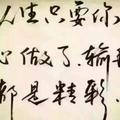 人生只要你
心做了，输赢
都是精彩.